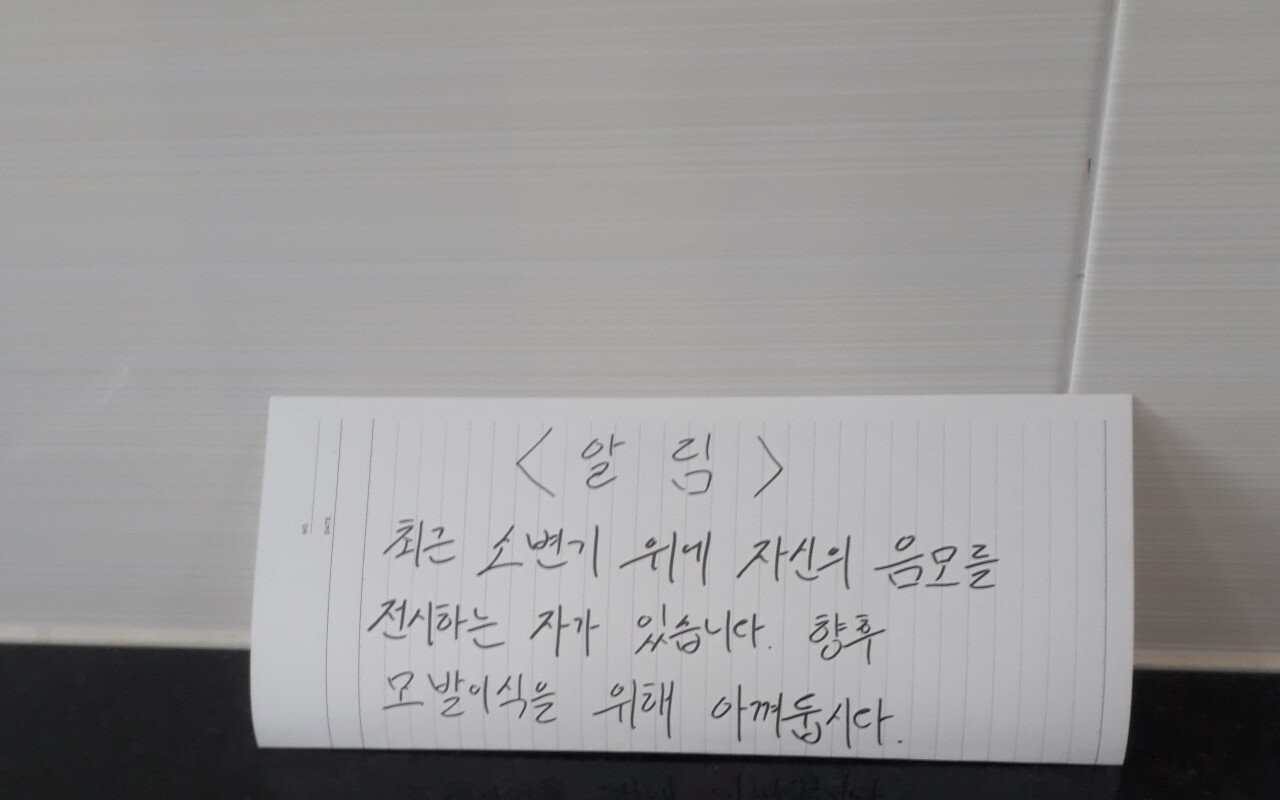 < 알 림 >
최근 소변기 위에 자신의 음모를
전시하는 자가 있습니다. 향후
모발이식을 위해 아껴둡시다.
NO.
DATE.